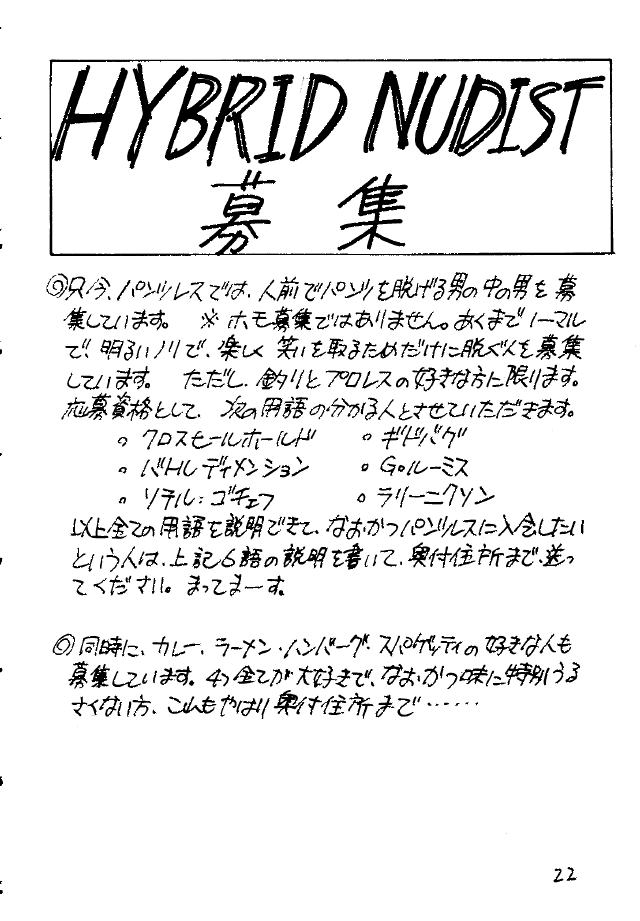 HYBRID NUDIST
募集
◎只今、パンツレスでは、人前でパンツを脱げる男の中の男を募
集しています。 ※ホモ募集ではありません。あくまでノーマル
で、明るいノリで、楽しく笑いを取るためだけに脱ぐ人を募集
しています。 ただし、釣りとプロレスの好きな方に限ります。
応募資格として、次の用語の分かる人とさせていただきます。
○クロスセールホールド ○ギドバグ
○バトルディメンション ○Goルーミス
○ソテル:ゴチェフ ○ラリーニクソン
以上全ての用語を説明できて、なおかつパンツレスに入会したい
という人は、上記6語の説明を書いて、奥付住所まで送っ
てください。まってまーす。
◎同時に、カレー、ラーメン・ハンバーグ・スパゲッティの好きな人も
募集しています。4つ全てが大好きで、なおかつ味に特別うる
さくない方、これもやはり奥付住所まで……
22